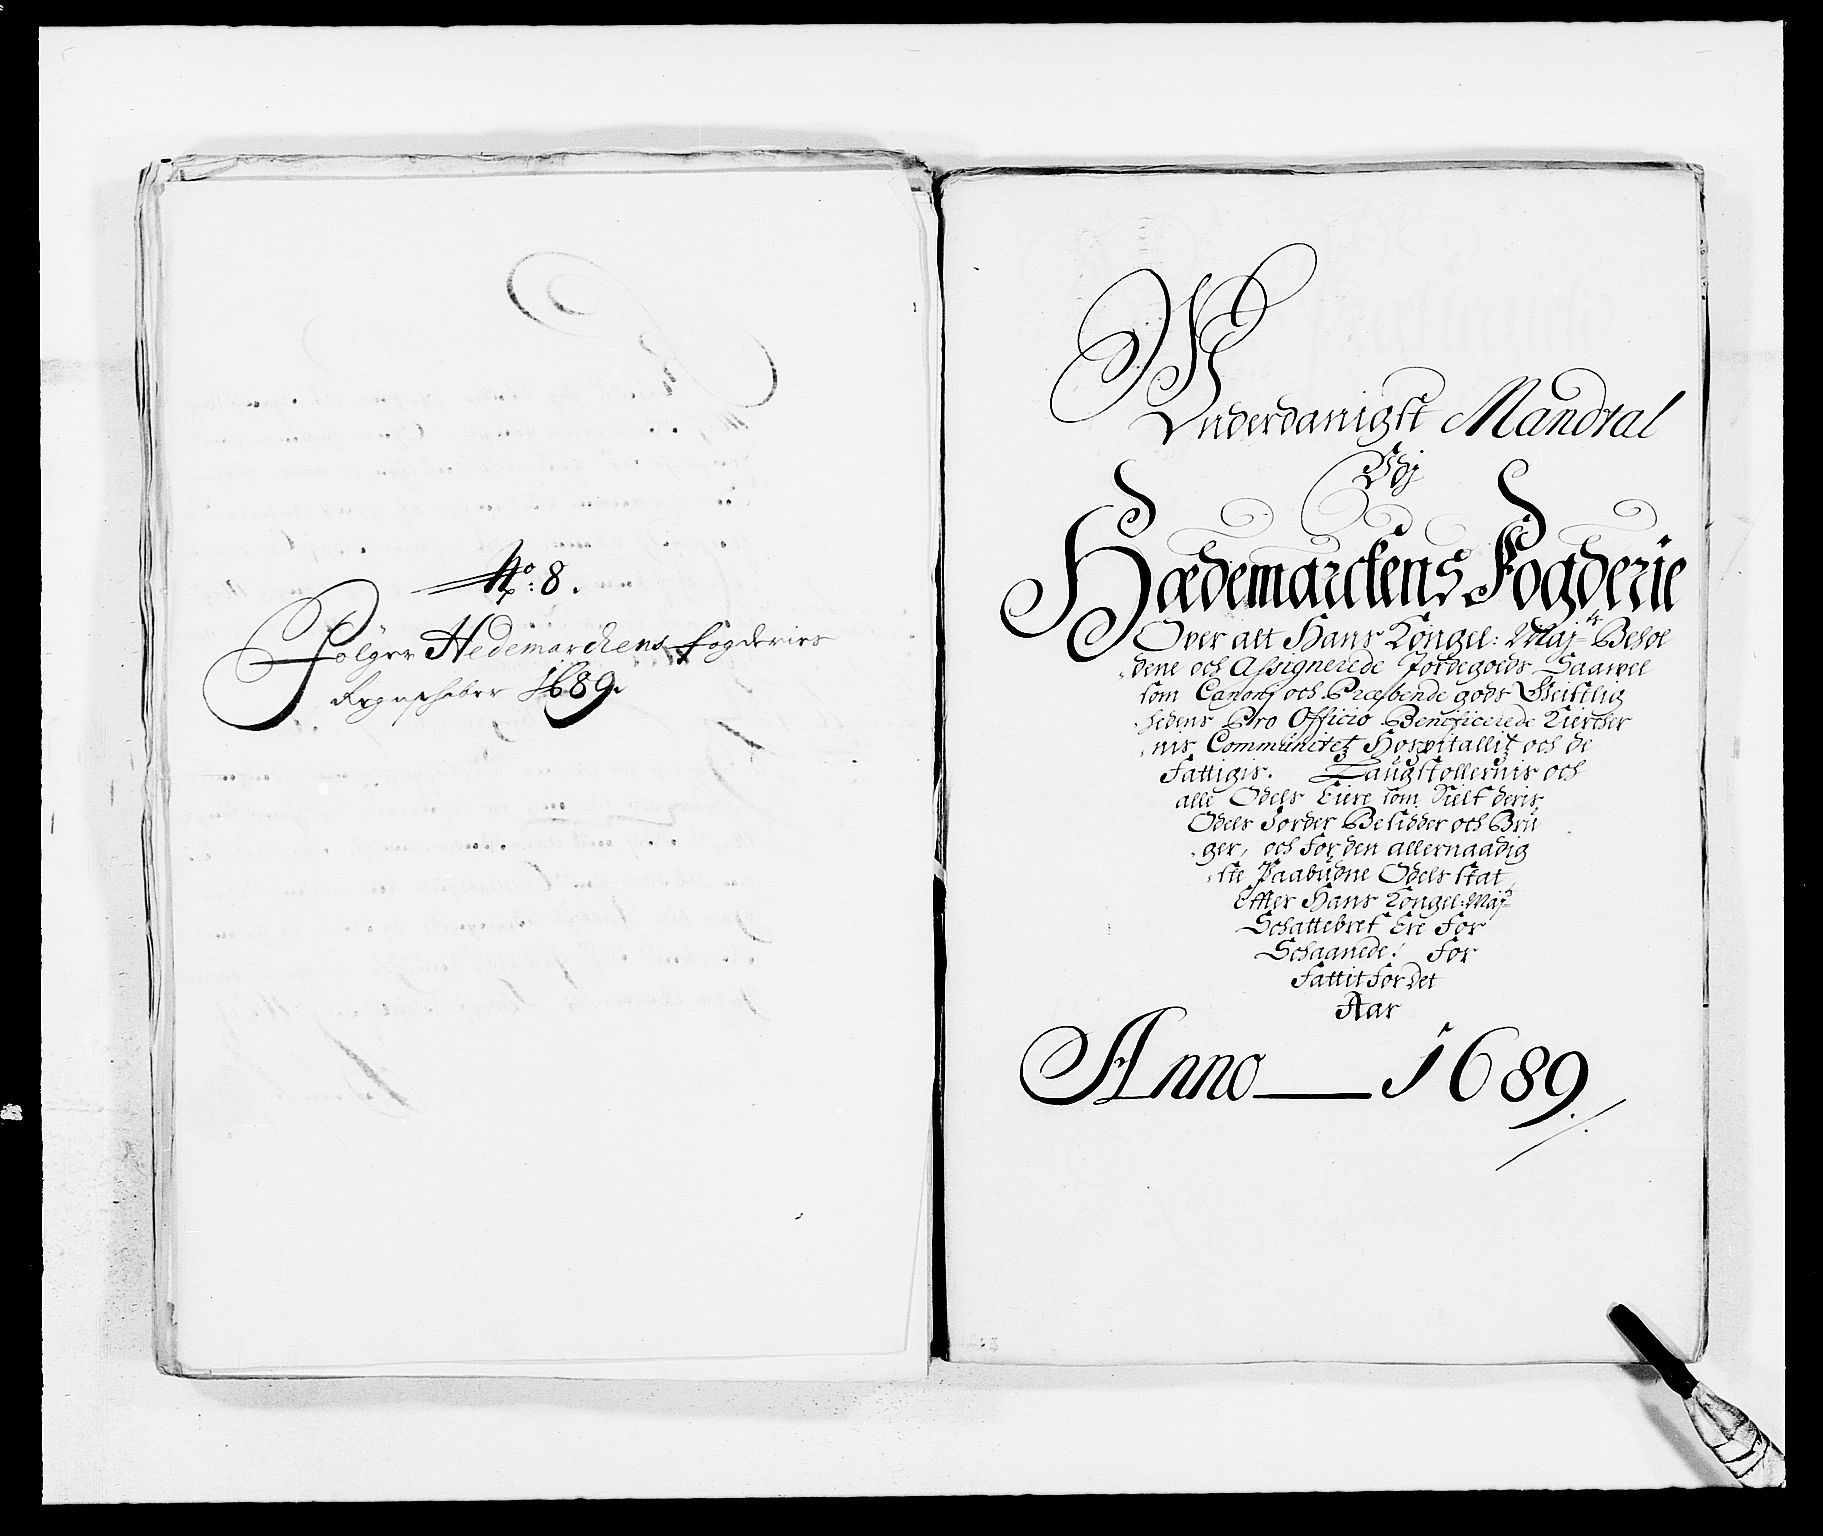 No: 8.
Følger Hedemarckens fogderies
Regnschaber 1689.
Vnderdanigst Mandtal
Vdj
Hædemarckens Fogderie
Over alt Hans Kongel: Maj:ts Behol
dene och Assignerede Jordegods Saavel
som Canonj och Præbende gods Geistlig
hedens Pro Officio Beneficerede Kircher
nis Communitet Hospitallit och de
Fattigis. Laugstollernis och
alle Odels Eiere som Sielf deris
Odels Jorder Besidder och Bru
ger, och for den allernaadig
ste Paabudne Odels skat
Effter Hans Kongel: Maj:ts
Schattebref Ere For
Schaanede! For
Fattit for det
Aar
Anno 1689